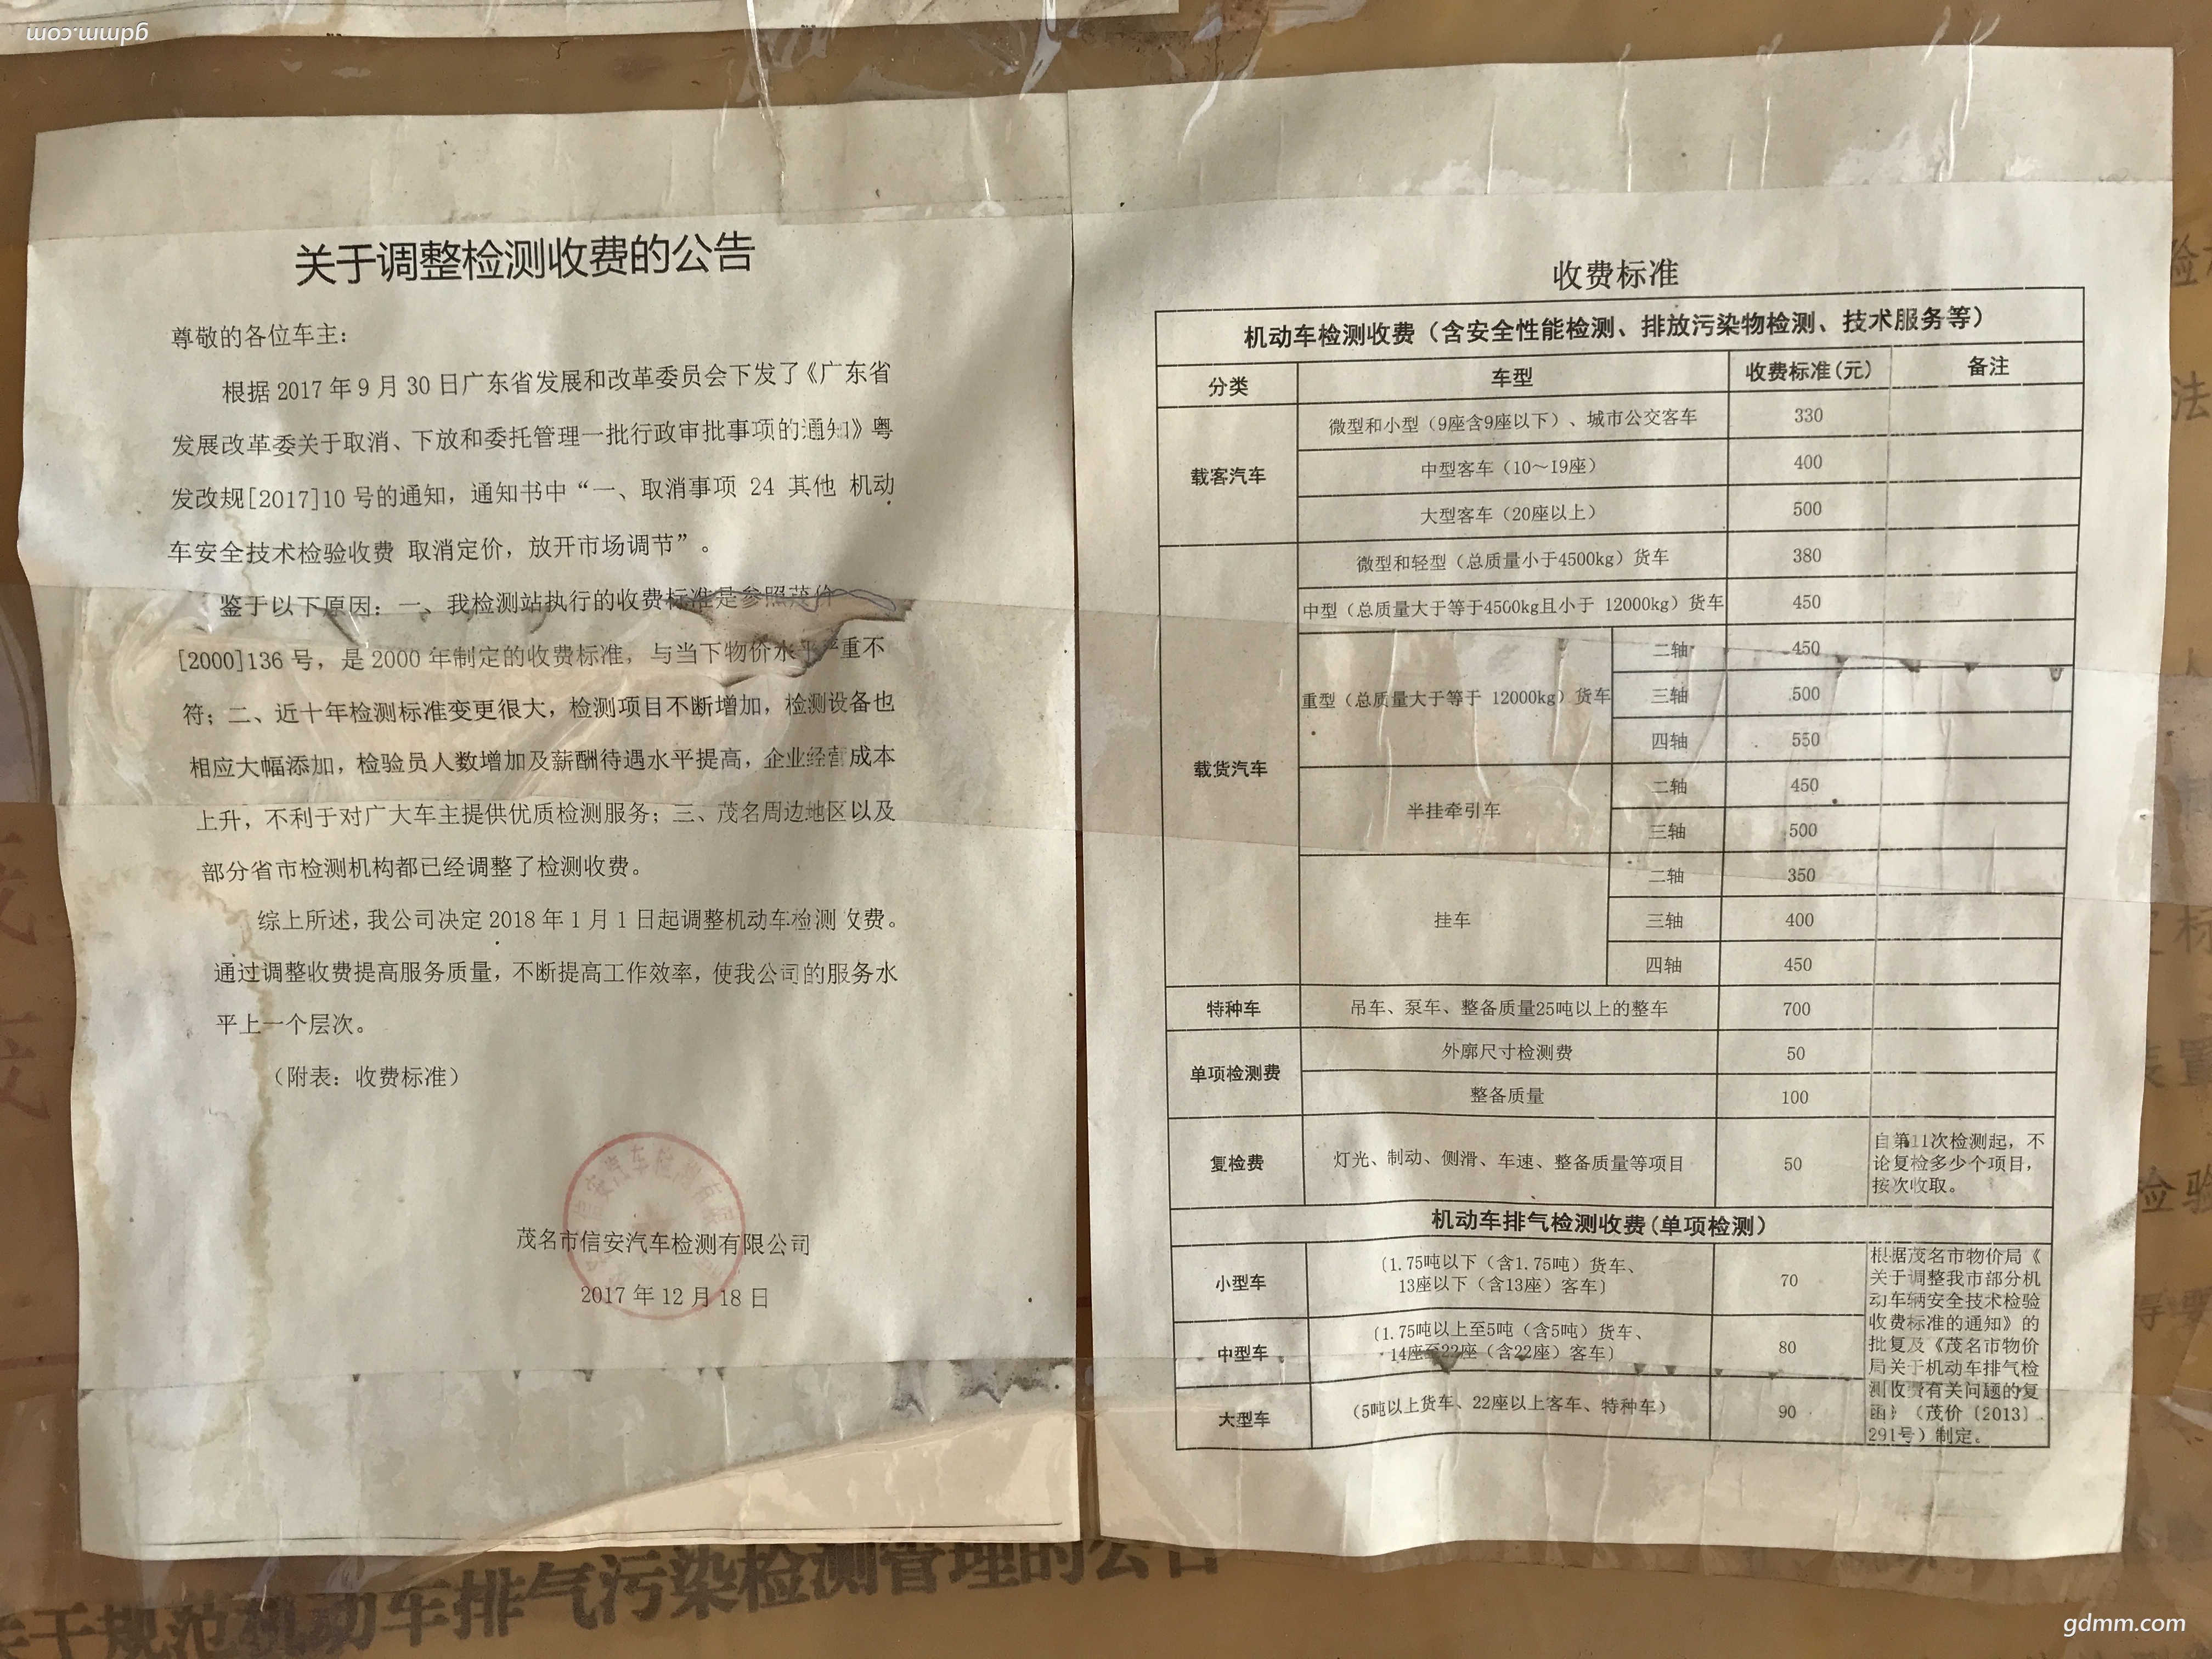 gdmm.com
关于调整检测收费的公告
尊敬的各位车主：
根据 2017 年 9 月 30 日广东省发展和改革委员会下发了《广东省
发展改革委关于取消、下放和委托管理一批行政审批事项的通知》粤
发改规[2017]10 号的通知，通知书中“一、取消事项 24 其他 机动
车安全技术检验收费 取消定价，放开市场调节”。
鉴于以下原因：一、我检测站执行的收费标准是参照茂价
[2000]136 号，是 2000 年制定的收费标准，与当下物价水平严重不
符；二、近十年检测标准变更很大，检测项目不断增加，检测设备也
相应大幅添加，检验员人数增加及薪酬待遇水平提高，企业经营成本
上升，不利于对广大车主提供优质检测服务；三、茂名周边地区以及
部分省市检测机构都已经调整了检测收费。
综上所述，我公司决定 2018 年 1 月 1 日起调整机动车检测收费。
通过调整收费提高服务质量，不断提高工作效率，使我公司的服务水
平上一个层次。
（附表：收费标准）
茂名市信安汽车检测有限公司
2017 年 12 月 18 日
收费标准
机动车检测收费（含安全性能检测、排放污染物检测、技术服务等）
分类 车型 收费标准(元) 备注
载客汽车 微型和小型（9座含9座以下）、城市公交客车 330
中型客车（10～19座） 400
大型客车（20座以上） 500
载货汽车 微型和轻型（总质量小于4500kg）货车 380
中型（总质量大于等于4500kg且小于 12000kg）货车 450
重型（总质量大于等于 12000kg）货车 二轴 450
三轴 500
四轴 550
半挂牵引车 二轴 450
三轴 500
挂车 二轴 350
三轴 400
四轴 450
特种车 吊车、泵车、整备质量25吨以上的整车 700
单项检测费 外廓尺寸检测费 50
整备质量 100
复检费 灯光、制动、侧滑、车速、整备质量等项目 50
自第11次检测起，不
论复检多少个项目，
按次收取。
机动车排气检测收费(单项检测）
小型车 〔1.75吨以下（含1.75吨）货车、
13座以下（含13座）客车〕 70
中型车 〔1.75吨以上至5吨（含5吨）货车、
14座至22座（含22座）客车〕 80
大型车 （5吨以上货车、22座以上客车、特种车） 90
根据茂名市物价局《
关于调整我市部分机
动车辆安全技术检验
收费标准的通知》的
批复及《茂名市物价
局关于机动车排气检
测收费有关问题的复
函》（茂价〔2013〕
291号）制定。
关于规范机动车排气污染检测管理的公告
gdmm.com